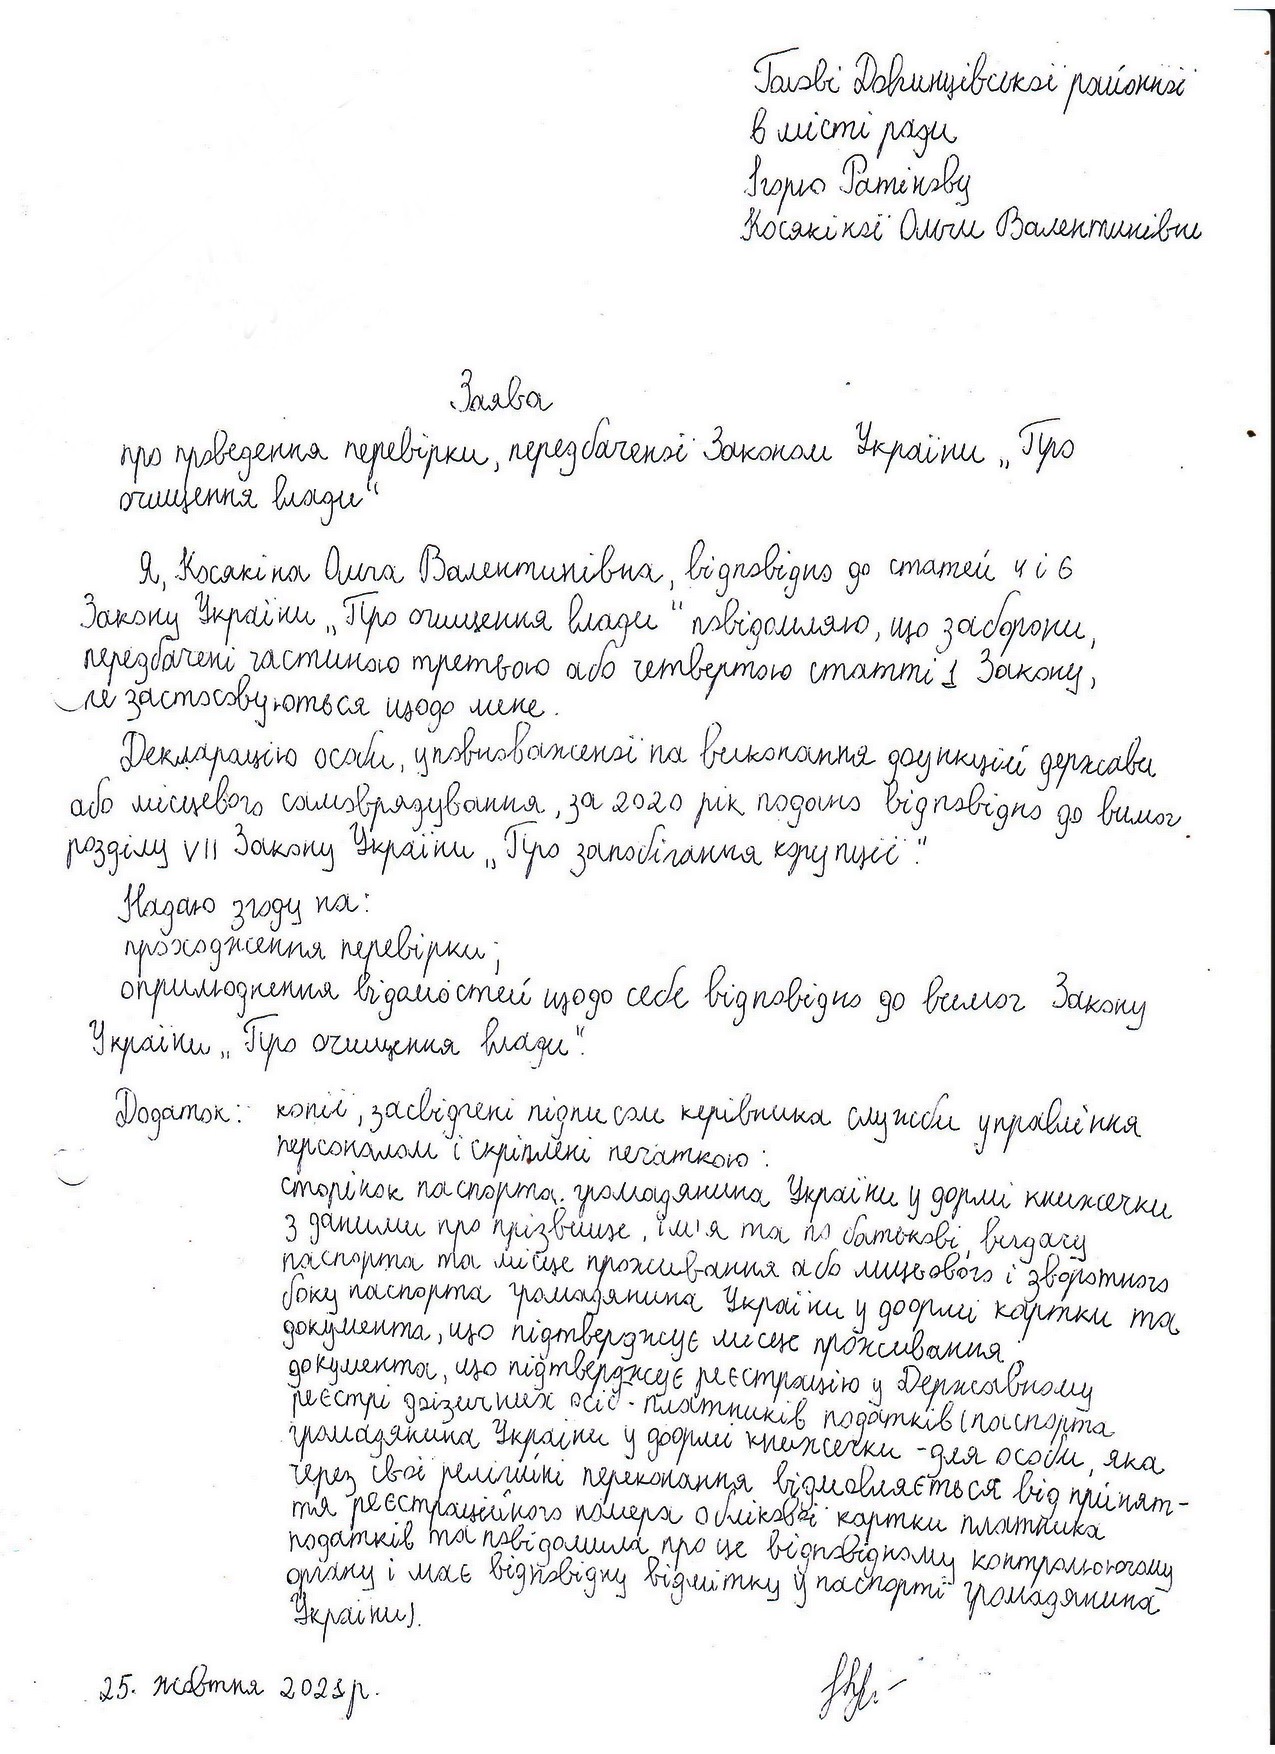 Голові Довгинцівської районної
в місті ради
Ігорю Ратінову
Косякіної Ольги Валентинівни
Заява
про проведення перевірки, передбаченої Законом України „Про
очищення влади“
Я, Косякіна Ольга Валентинівна, відповідно до статей 4 і 6
Закону України „Про очищення влади“ повідомляю, що заборони,
передбачені частиною третьою або четвертою статті 1 Закону,
не застосовуються щодо мене.
Декларацію особи, уповноваженої на виконання функцій держави
або місцевого самоврядування, за 2020 рік подано відповідно до вимог
розділу VII Закону України „Про запобігання корупції“.
Надаю згоду на:
проходження перевірки;
оприлюднення відомостей щодо себе відповідно до вимог Закону
України „Про очищення влади“.
Додаток: копії, засвідчені підписом керівника служби управління
персоналом і скріплені печаткою:
сторінок паспорта громадянина України у формі книжечки
з даними про прізвище, ім'я та по батькові, видачу
паспорта та місце проживання або лицьового і зворотного
боку паспорта громадянина України у формі картки та
документа, що підтверджує місце проживання,
документа, що підтверджує реєстрацію у Державному
реєстрі фізичних осіб - платників податків (паспорта
громадянина України у формі книжечки - для особи, яка
через свої релігійні переконання відмовляється від принят-
тя реєстраційного номера облікової картки платника
податків та повідомила про це відповідному контролюючому
органу і має відповідну відмітку у паспорті громадянина
України).
25. жовтня 2021р.